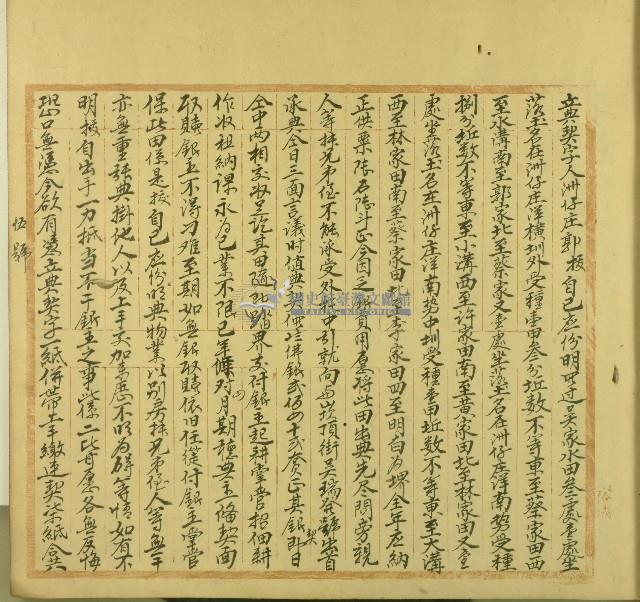 立典契字人洲仔庄郭扳自己應份明買過吳家水田叁處壹處坐
落土名在洲仔庄洋橫圳外受種壹甲叁分近数不等東至蔡家田西
至水溝南至郭家北至蔡家又壹處坐落土名在洲仔庄洋南勢受種
捌分近数不等東至小溝西至許家田南至黄家田北至林家田又壹
處坐落土名在洲仔庄洋南勢中圳受種壹甲近数不等東至大溝
西至林家田南至蔡家田北至李家田四至明白為界全年應納
正供粟陸石陸斗正今因乏銀費用愿將此田出典先尽問旁親
人等扶兄弟侄不能承受外托中引就向與崁頂街吳瑞 出首
承典今日三面言議時值典 佛銀貳仟四十貳大員正其銀即日
仝中两相交收足訖其田隨 踏界交付銀主起耕掌管招佃耕
作收租納課永為己業不限年條四对月期聽典主備契面
取贖銀主不得刁难至期如無銀取贖依旧任從付銀主掌管
保此田係是扳自己應份明典物業以别房扶兄弟侄人等無干
亦無重張典掛他人以及上手交加來歷不明為碍等情如有不
明扳自出手一力抵当不干銀主之事此係二比甘愿各無反悔
恐口無憑今欲有憑立典契字一紙併帶上手繳連契柒紙合共
伍號
國史館臺灣文獻館
TAIWAN HISTORICA